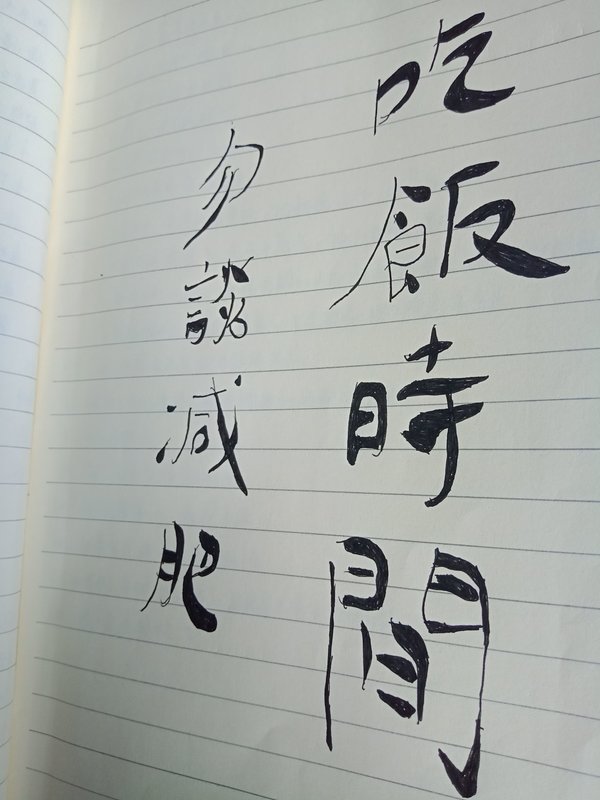 吃飯時間
勿談減肥